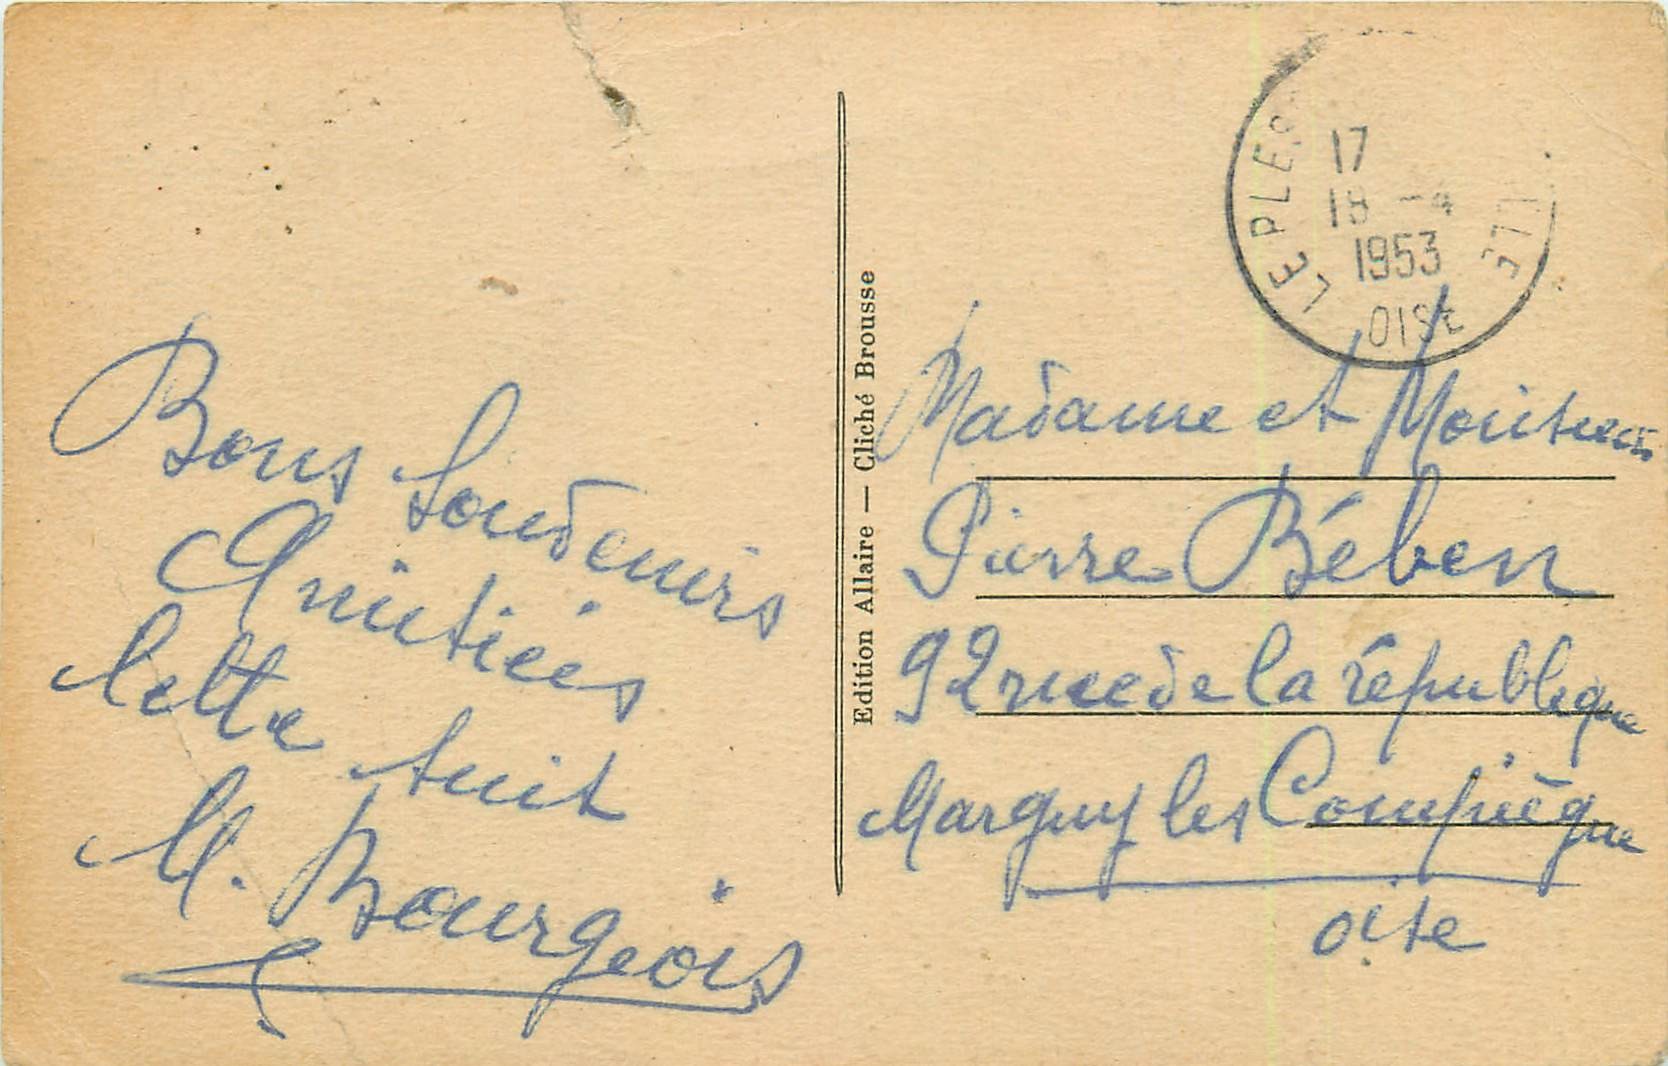 Bons Souvenirs
Amitiés
lettre suit
M. Bourgeois
Edition Allaire — Cliché Brousse
LE PLES
17
18 -4
1953
OISE
Madame et Monsieur
Pierre Bében
92 rue de la république
Margny les Compiègne
oise